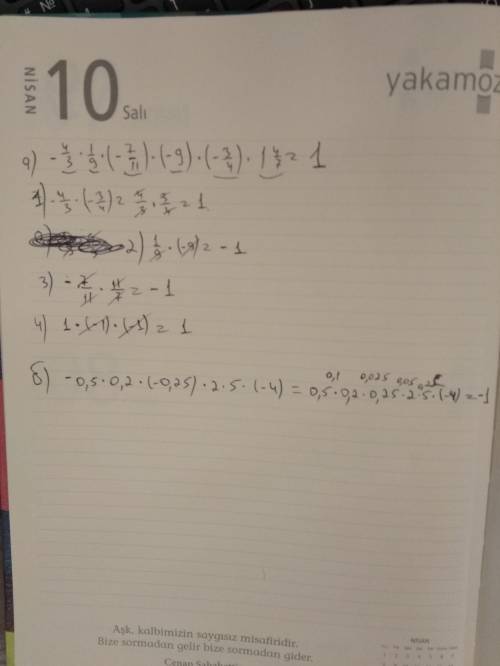 NİSAN
10
Salı
yakamoz
а) -4/3 · 1/9 · (-7/11) · (-9) · (-3/4) · 1 4/7 = 1
1) -4/3 · (-3/4) = 4/3 · 3/4 = 1
2) 1/9 · (-9) = -1
3) -7/11 · 11/7 = -1
4) 1 · (-1) · (-1) = 1
0,1 0,025 0,05 0,25
б) -0,5 · 0,2 · (-0,25) · 2 · 5 · (-4) = 0,5 · 0,2 · 0,25 · 2 · 5 · (-4) = -1
Aşk, kalbimizin saygısız misafiridir.
Bize sormadan gelir bize sormadan gider.
NİSAN